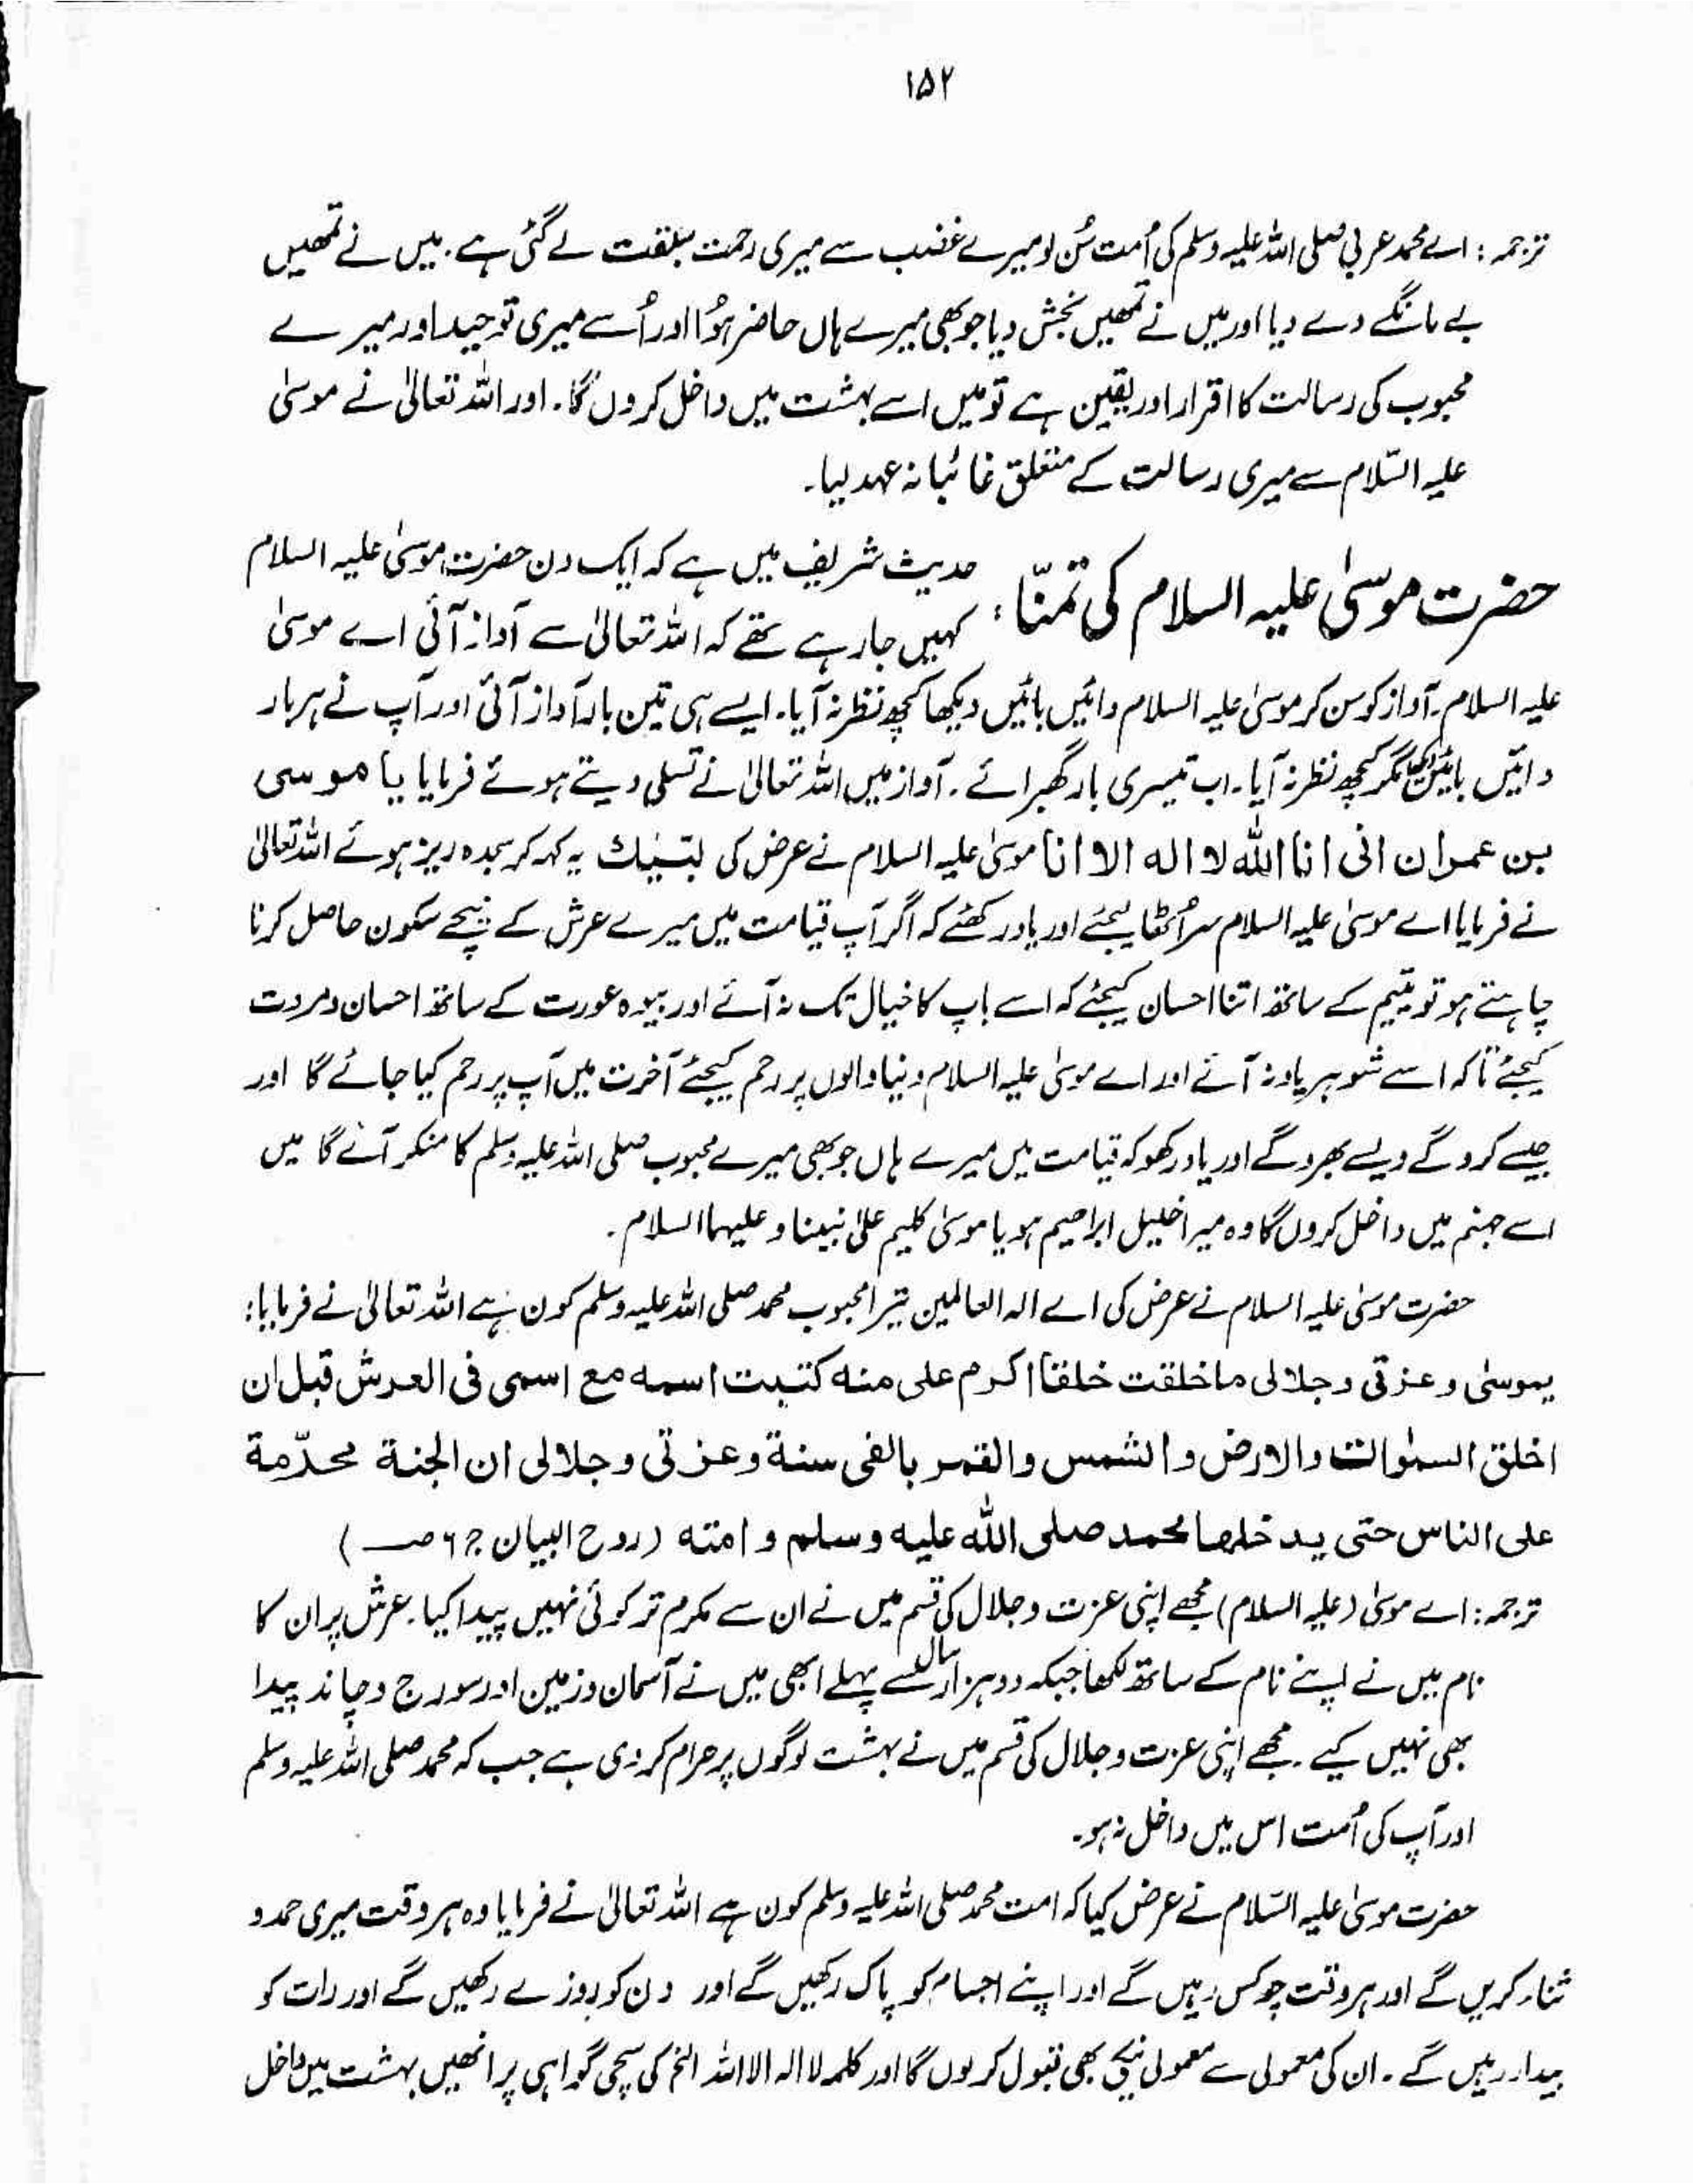 ۱۵۲
ترجمہ: اے محمد عربی صلی اللہ علیہ وسلم کی اُمت سُن لو میرے غضب سے میری رحمت سبقت لے گئی ہے. میں نے تمھیں
بے مانگے دے دیا اور میں نے تمھیں بخش دیا جو بھی میرے ہاں حاضر ہُوا اور اُسے میری توحید اور میرے
محبوب کی رسالت کا اقرار اور یقین ہے تو میں اسے بہشت میں داخل کروں گا۔ اور اللہ تعالیٰ نے موسیٰ
علیہ السّلام سے میری رسالت کے متعلق غائبانہ عہد لیا۔
حضرت موسیٰ علیہ السلام کی تمنّا: حدیث شریف میں ہے کہ ایک دن حضرت موسیٰ علیہ السلام
کہیں جا رہے تھے کہ اللہ تعالیٰ سے آواز آئی اے موسیٰ
علیہ السلام۔ آواز کو سن کر موسیٰ علیہ السلام دائیں بائیں دیکھا کچھ نظر نہ آیا۔ ایسے ہی تین بار آواز آئی اور آپ نے ہر بار
دائیں بائیں دیکھا مگر کچھ نظر نہ آیا۔ اب تیسری بار گھبرائے۔ آواز میں اللہ تعالیٰ نے تسلی دیتے ہوئے فرمایا یا موسی
بن عمران انی انا اللہ لا الہ الا انا موسیٰ علیہ السلام نے عرض کی لبّیك یہ کہہ کر سجدہ ریز ہوئے اللہ تعالیٰ
نے فرمایا اے موسیٰ علیہ السلام سر اُٹھا لیجئے اور یاد رکھئے کہ اگر آپ قیامت میں میرے عرش کے نیچے سکون حاصل کرنا
چاہتے ہو تو یتیم کے ساتھ اتنا احسان کیجئے کہ اسے باپ کا خیال تک نہ آئے اور بیوہ عورت کے ساتھ احسان و مروت
کیجئے تاکہ اسے شوہر یاد نہ آئے اور اے موسیٰ علیہ السلام دنیا والوں پر رحم کیجئے آخرت میں آپ پر رحم کیا جائے گا اور
جیسے کرو گے ویسے بھرو گے اور یاد رکھو کہ قیامت میں میرے ہاں جو بھی میرے محبوب صلی اللہ علیہ وسلم کا منکر آئے گا میں
اسے جہنم میں داخل کروں گا وہ میرا خلیل ابراھیم ہو یا موسیٰ کلیم علیٰ نبینا و علیہما السلام۔
حضرت موسیٰ علیہ السلام نے عرض کی اے الہ العالمین تیرا محبوب محمد صلی اللہ علیہ وسلم کون ہے اللہ تعالیٰ نے فرمایا:
یموسیٰ و عزتی و جلالی ما خلقت خلقا اکرم علی منه کتبت اسمه مع اسمی فی العرش قبل ان
اخلق السمٰوات والارض و الشمس والقمر بالفی سنة وعزتی و جلالی ان الجنة محرّمة
علی الناس حتی یدخلها محمد صلی اللہ علیه وسلم و امته (روح البیان ج ۶ صـــ)
ترجمہ: اے موسیٰ (علیہ السلام) مجھے اپنی عزت و جلال کی قسم میں نے ان سے مکرم تر کوئی نہیں پیدا کیا۔ عرش پر ان کا
نام میں نے اپنے نام کے ساتھ لکھا جبکہ دو ہزار سال سے پہلے ابھی میں نے آسمان و زمین اور سورج و چاند پیدا
بھی نہیں کیے۔ مجھے اپنی عزت و جلال کی قسم میں نے بہشت لوگوں پر حرام کر دی ہے جب کہ محمد صلی اللہ علیہ وسلم
اور آپ کی اُمت اس میں داخل نہ ہو۔
حضرت موسیٰ علیہ السّلام نے عرض کیا کہ امت محمد صلی اللہ علیہ وسلم کون ہے اللہ تعالیٰ نے فرمایا وہ ہر وقت میری حمد و
ثناء کریں گے اور ہر وقت چوکس رہیں گے اور اپنے اجسام کو پاک رکھیں گے اور دن کو روزے رکھیں گے اور رات کو
بیدار رہیں گے۔ ان کی معمولی سے معمولی نیکی بھی قبول کر لوں گا اور کلمہ لا الہ الا اللہ الخ کی سچی گواہی پر انھیں بہشت میں داخل